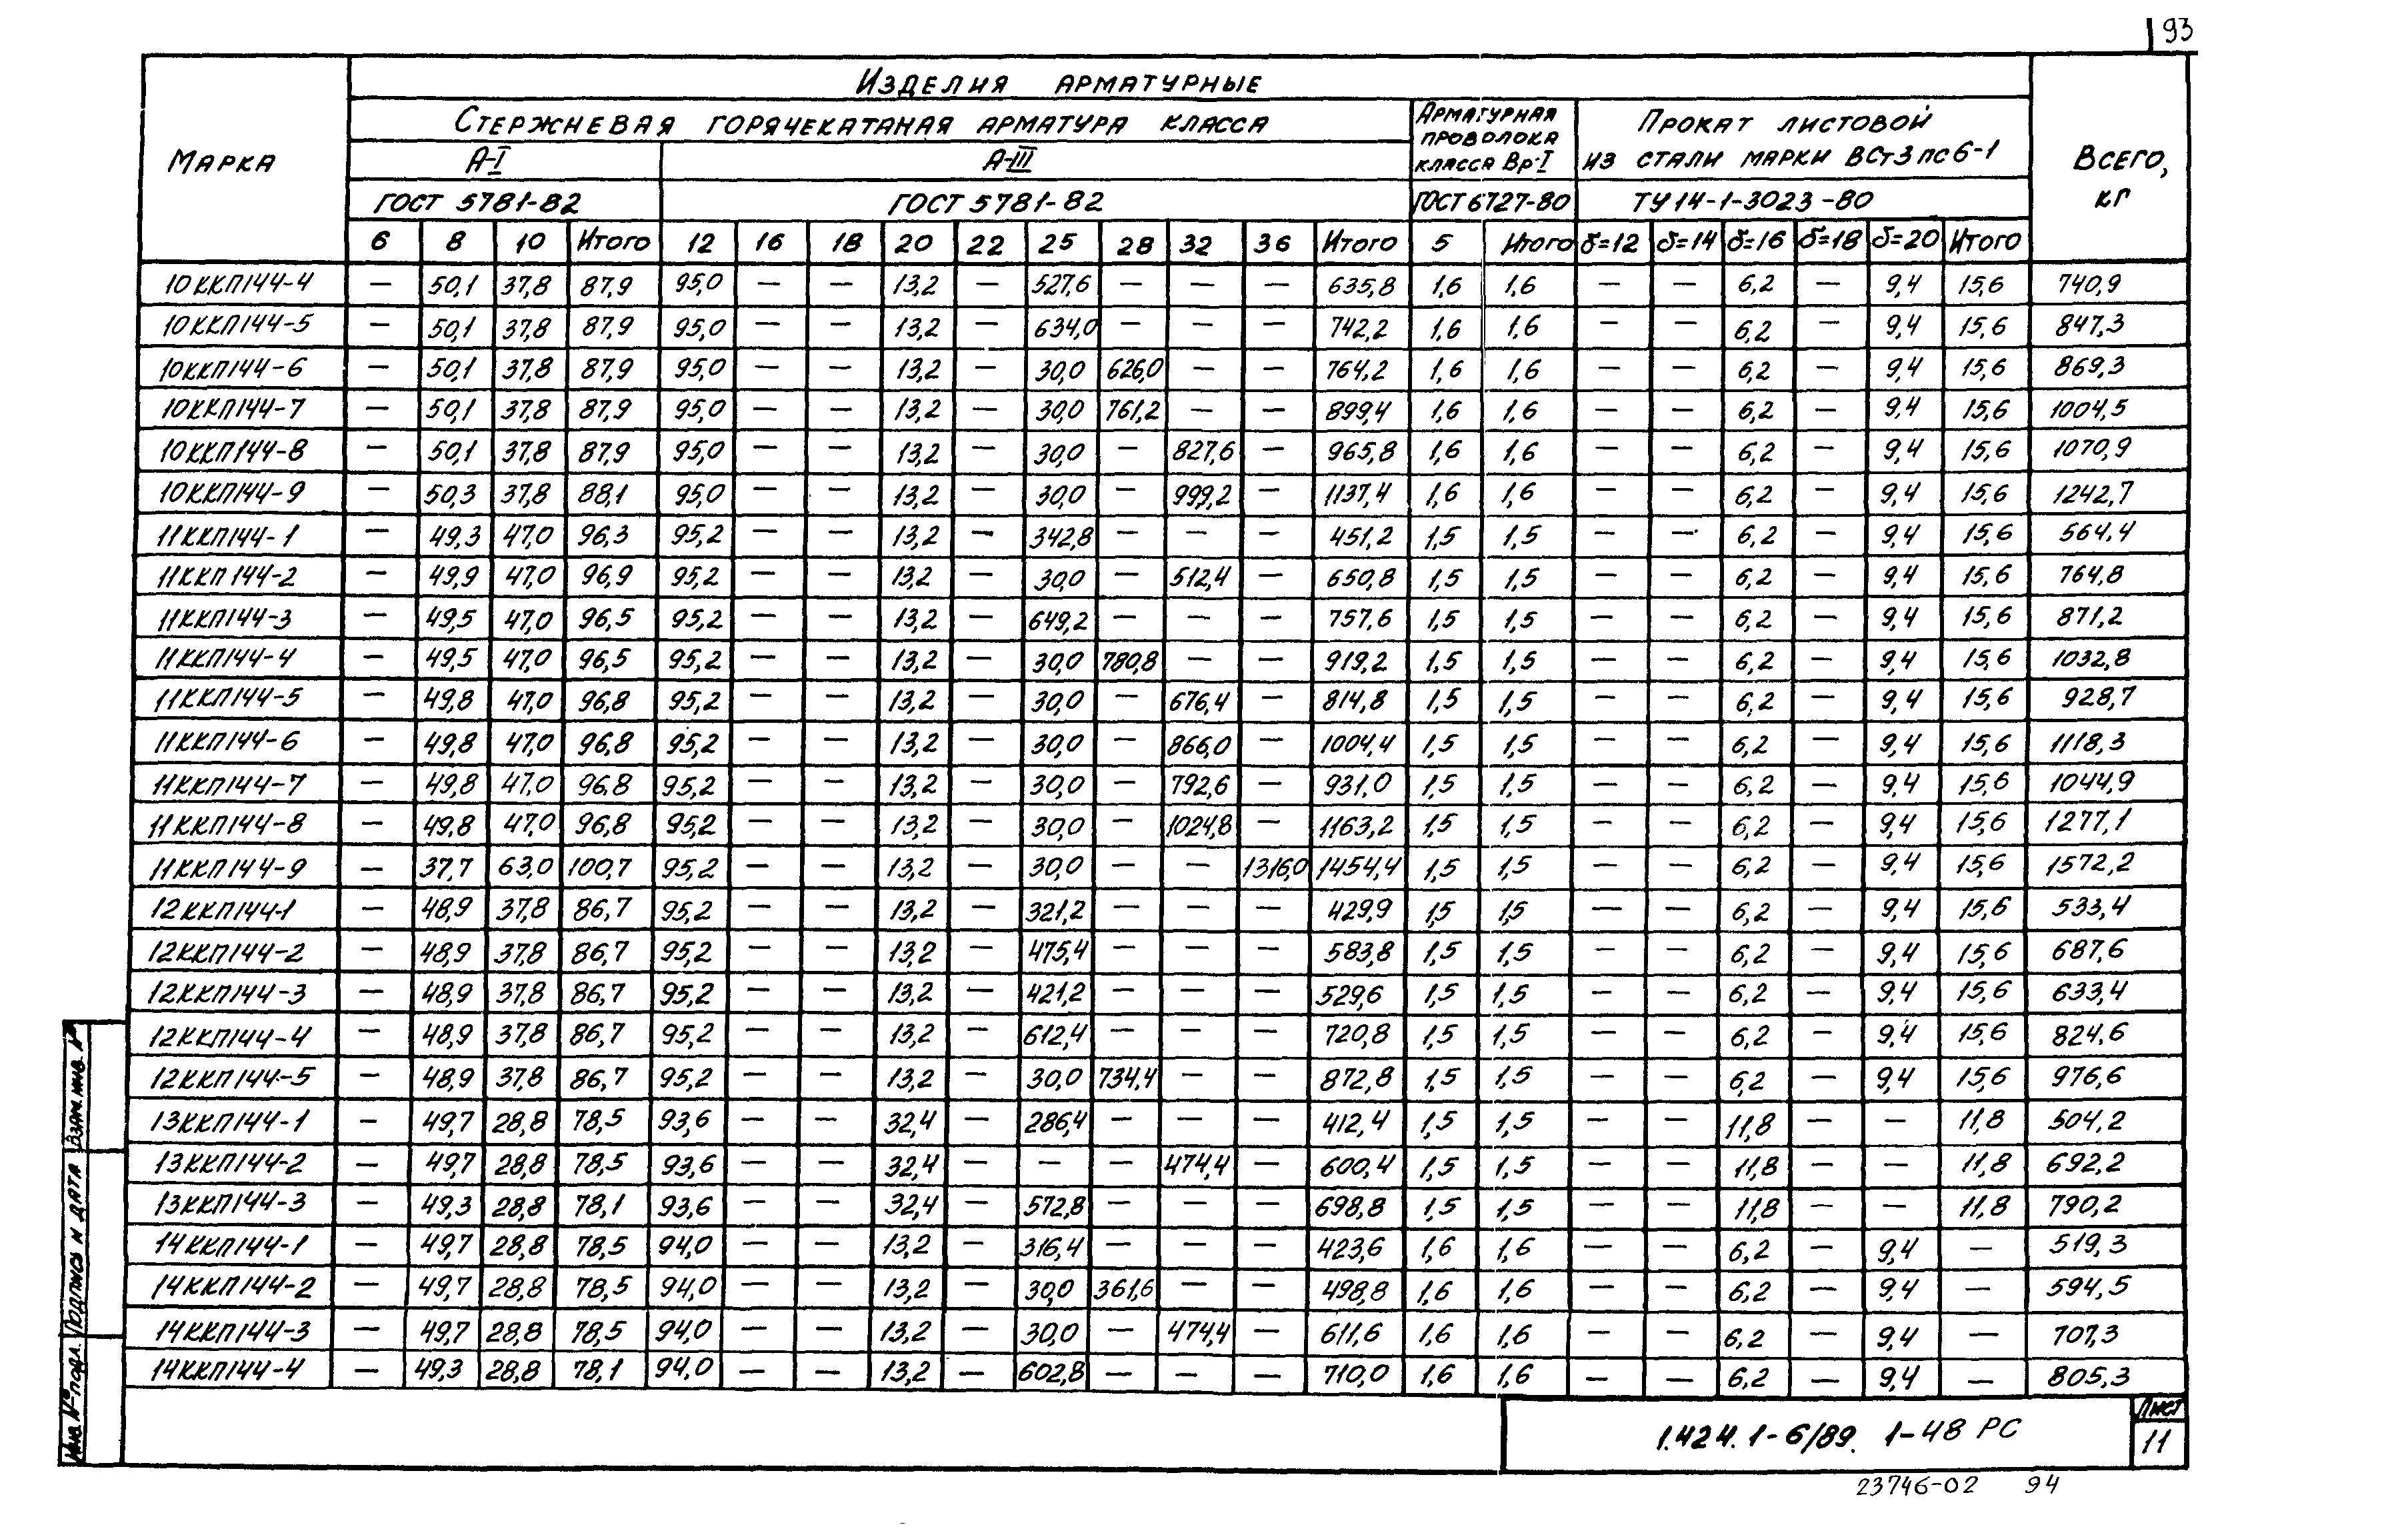 93
Марка
Изделия арматурные
Всего, кг
Стержневая горячекатаная арматура класса
Арматурная проволока класса Вр-I
Прокат листовой из стали марки ВСт3пс6-1
А-I А-III
ГОСТ 5781-82 ГОСТ 5781-82 ГОСТ 6727-80 ТУ14-1-3023-80
6 8 10 Итого 12 16 18 20 22 25 28 32 36 Итого 5 Итого δ=12 δ=14 δ=16 δ=18 δ=20 Итого
10ККП144-4 — 50,1 37,8 87,9 95,0 — — 13,2 — 527,6 — — — 635,8 1,6 1,6 — — 6,2 — 9,4 15,6 740,9
10ККП144-5 — 50,1 37,8 87,9 95,0 — — 13,2 — 634,0 — — — 742,2 1,6 1,6 — — 6,2 — 9,4 15,6 847,3
10ККП144-6 — 50,1 37,8 87,9 95,0 — — 13,2 — 30,0 626,0 — — 764,2 1,6 1,6 — — 6,2 — 9,4 15,6 869,3
10ККП144-7 — 50,1 37,8 87,9 95,0 — — 13,2 — 30,0 761,2 — — 899,4 1,6 1,6 — — 6,2 — 9,4 15,6 1004,5
10ККП144-8 — 50,1 37,8 87,9 95,0 — — 13,2 — 30,0 — 827,6 — 965,8 1,6 1,6 — — 6,2 — 9,4 15,6 1070,9
10ККП144-9 — 50,3 37,8 88,1 95,0 — — 13,2 — 30,0 — 999,2 — 1137,4 1,6 1,6 — — 6,2 — 9,4 15,6 1242,7
11ККП144-1 — 49,3 47,0 96,3 95,2 — — 13,2 — 342,8 — — — 451,2 1,5 1,5 — — 6,2 — 9,4 15,6 564,4
11ККП144-2 — 49,9 47,0 96,9 95,2 — — 13,2 — 30,0 — 512,4 — 650,8 1,5 1,5 — — 6,2 — 9,4 15,6 764,8
11ККП144-3 — 49,5 47,0 96,5 95,2 — — 13,2 — 649,2 — — — 757,6 1,5 1,5 — — 6,2 — 9,4 15,6 871,2
11ККП144-4 — 49,5 47,0 96,5 95,2 — — 13,2 — 30,0 780,8 — — 919,2 1,5 1,5 — — 6,2 — 9,4 15,6 1032,8
11ККП144-5 — 49,8 47,0 96,8 95,2 — — 13,2 — 30,0 — 676,4 — 814,8 1,5 1,5 — — 6,2 — 9,4 15,6 928,7
11ККП144-6 — 49,8 47,0 96,8 95,2 — — 13,2 — 30,0 — 866,0 — 1004,4 1,5 1,5 — — 6,2 — 9,4 15,6 1118,3
11ККП144-7 — 49,8 47,0 96,8 95,2 — — 13,2 — 30,0 — 792,6 — 931,0 1,5 1,5 — — 6,2 — 9,4 15,6 1044,9
11ККП144-8 — 49,8 47,0 96,8 95,2 — — 13,2 — 30,0 — 1024,8 — 1163,2 1,5 1,5 — — 6,2 — 9,4 15,6 1277,1
11ККП144-9 — 37,7 63,0 100,7 95,2 — — 13,2 — 30,0 — — 1316,0 1454,4 1,5 1,5 — — 6,2 — 9,4 15,6 1572,2
12ККП144-1 — 48,9 37,8 86,7 95,2 — — 13,2 — 321,2 — — — 429,9 1,5 1,5 — — 6,2 — 9,4 15,6 533,4
12ККП144-2 — 48,9 37,8 86,7 95,2 — — 13,2 — 475,4 — — — 583,8 1,5 1,5 — — 6,2 — 9,4 15,6 687,6
12ККП144-3 — 48,9 37,8 86,7 95,2 — — 13,2 — 421,2 — — — 529,6 1,5 1,5 — — 6,2 — 9,4 15,6 633,4
12ККП144-4 — 48,9 37,8 86,7 95,2 — — 13,2 — 612,4 — — — 720,8 1,5 1,5 — — 6,2 — 9,4 15,6 824,6
12ККП144-5 — 48,9 37,8 86,7 95,2 — — 13,2 — 30,0 734,4 — — 872,8 1,5 1,5 — — 6,2 — 9,4 15,6 976,6
13ККП144-1 — 49,7 28,8 78,5 93,6 — — 32,4 — 286,4 — — — 412,4 1,5 1,5 — — 11,8 — — 11,8 504,2
13ККП144-2 — 49,7 28,8 78,5 93,6 — — 32,4 — — — 474,4 — 600,4 1,5 1,5 — — 11,8 — — 11,8 692,2
13ККП144-3 — 49,3 28,8 78,1 93,6 — — 32,4 — 572,8 — — — 698,8 1,5 1,5 — — 11,8 — — 11,8 790,2
14ККП144-1 — 49,7 28,8 78,5 94,0 — — 13,2 — 316,4 — — — 423,6 1,6 1,6 — — 6,2 — 9,4 — 519,3
14ККП144-2 — 49,7 28,8 78,5 94,0 — — 13,2 — 30,0 361,6 — — 498,8 1,6 1,6 — — 6,2 — 9,4 — 594,5
14ККП144-3 — 49,7 28,8 78,5 94,0 — — 13,2 — 30,0 — 474,4 — 611,6 1,6 1,6 — — 6,2 — 9,4 — 707,3
14ККП144-4 — 49,3 28,8 78,1 94,0 — — 13,2 — 602,8 — — — 710,0 1,6 1,6 — — 6,2 — 9,4 — 805,3
Взам. инв. №
Подпись и дата
Инв. № подл.
1.424.1-6/89. 1-48 РС
Лист
11
23746-02 94